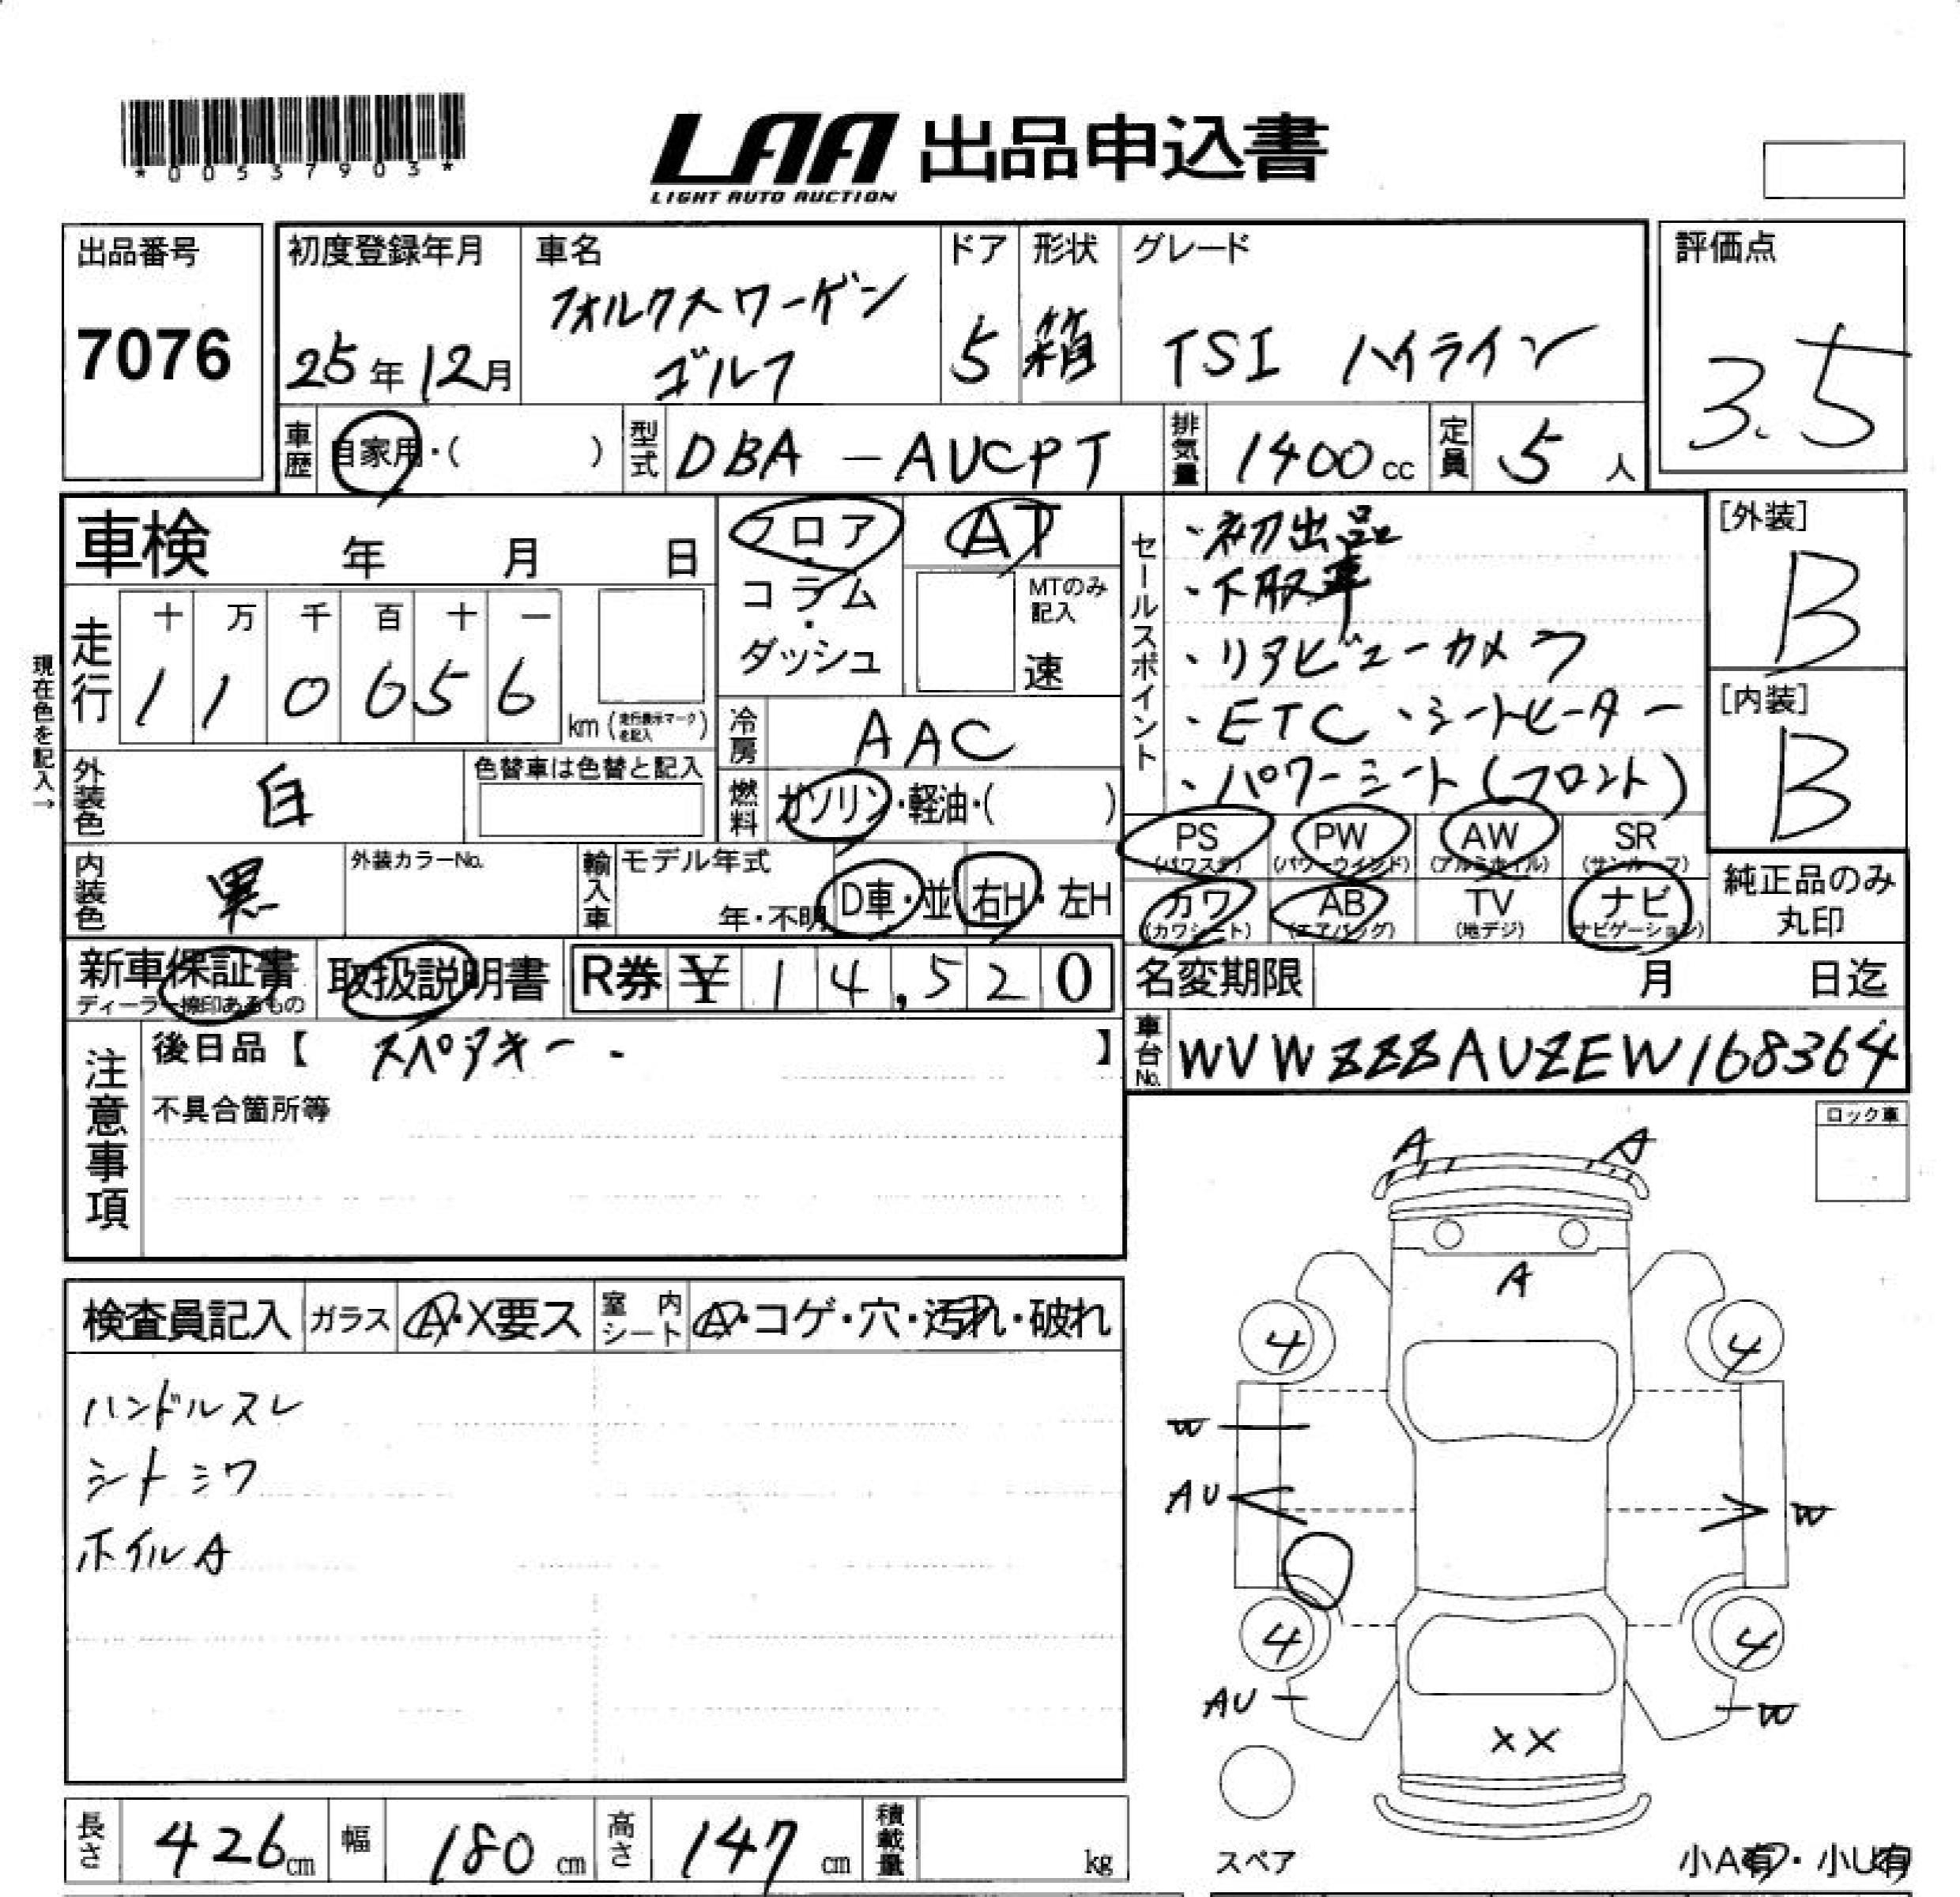 *00537903*
LAA 出品申込書
LIGHT AUTO AUCTION
出品番号
7076
初度登録年月
25年12月
車名
フォルクスワーゲン
ゴルフ
ドア
5
形状
箱
グレード
TSI ハイライン
評価点
3.5
車歴 自家用・( )
型式 DBA-AUCPT
排気量 1400cc
定員 5人
車検 年 月 日
フロア・コラム・ダッシュ
AT
MTのみ記入
速
セールスポイント
・初出品
・下取車
・リアビューカメラ
・ETC ・シートヒーター
・パワーシート(フロント)
[外装]
B
[内装]
B
現在色を記入→
走行
十 万 千 百 十 一
1 1 0 6 5 6
km (走行表示マークを記入)
冷房 AAC
外装色 白
色替車は色替と記入
燃料 ガソリン・軽油・( )
PS (パワステ)
PW (パワーウインド)
AW (アルミホイル)
SR (サンルーフ)
カワ (カワシート)
AB (エアバッグ)
TV (地デジ)
ナビ (ナビゲーション)
純正品のみ
丸印
内装色 黒
外装カラーNo.
輸入車
モデル年式
年・不明
D車・並
右H・左H
新車保証書
ディーラー捺印あるもの
取扱説明書
R券 ¥ 14,520
名変期限 月 日迄
注意事項
後日品【 スペアキー・ 】
不具合箇所等
車台No. WVWZZZAUZEW168364
ロック車
検査員記入
ガラス A・X要ス
室内シート A・コゲ・穴・汚れ・破れ
ハンドルスレ
シートシワ
ホイルA
A A
A
4 4
W
AU W
4 4
AU W
XX
スペア
小A有・小U有
長さ 426cm
幅 180cm
高さ 147cm
積載量 kg